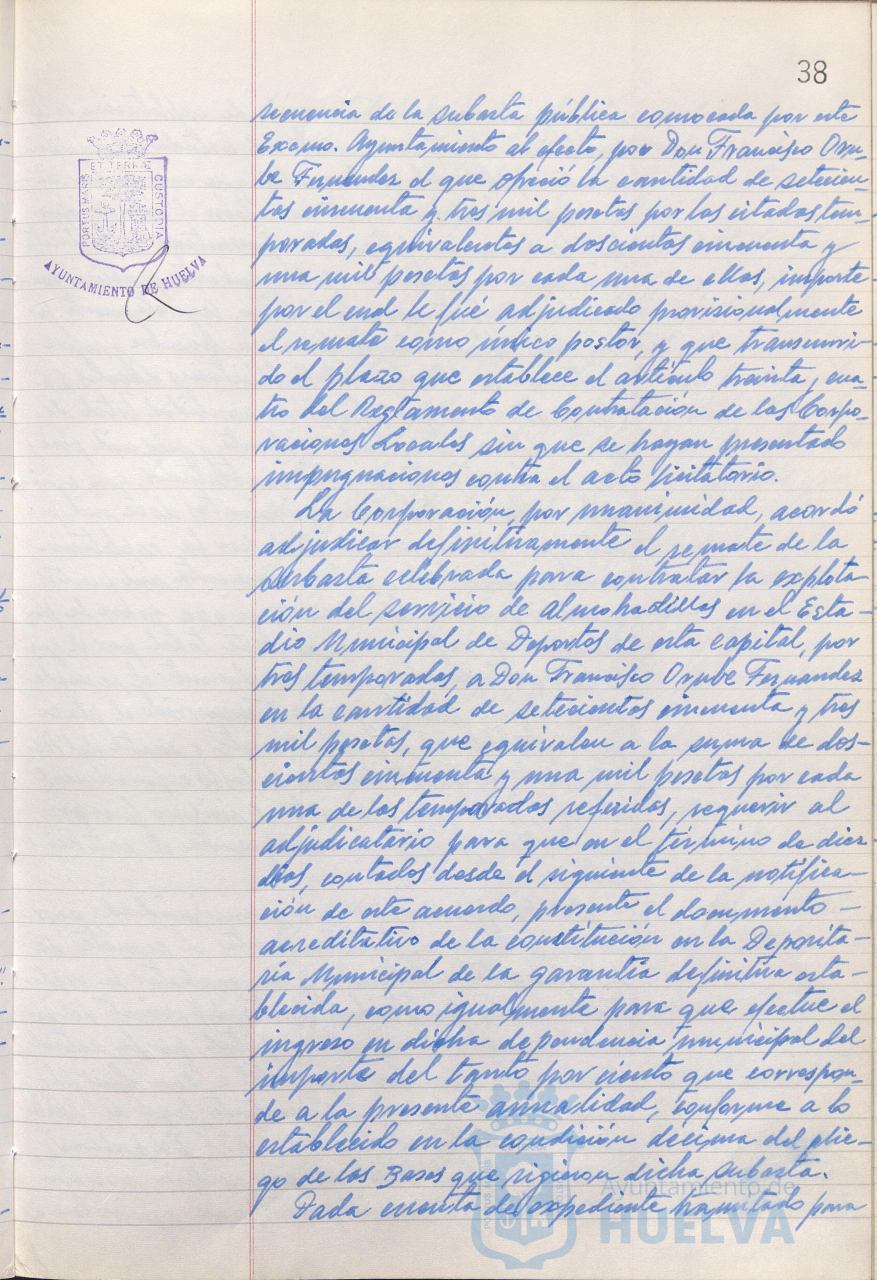 38
ET TERRÆ
PORTUS MARIS
CUSTODIA
AYUNTAMIENTO DE HUELVA
secuencia de la subasta pública convocada por este
Excmo. Ayuntamiento al efecto, por Don Francisco Oru-
be Fernandez el que ofreció la cantidad de setecien-
tas cincuenta y tres mil pesetas por las citadas tem-
poradas, equivalentes a doscientas cincuenta y
una mil pesetas por cada una de ellas, importe
por el cual le fué adjudicado provisionalmente
el remate como único postor, y que transcurri-
do el plazo que establece el artículo treinta y cua-
tro del Reglamento de Contratación de las Corpo-
raciones Locales sin que se hayan presentado
impugnaciones contra el acto licitatorio.
La Corporación, por unanimidad, acordó
adjudicar definitivamente el remate de la
subasta celebrada para contratar la explota
ción del servicio de almohadillas en el Esta-
dio Municipal de Deportes de esta capital, por
tres temporadas, a Don Francisco Orube Fernandez
en la cantidad de setecientas cincuenta y tres
mil pesetas, que equivalen a la suma de dos-
cientas cincuenta y una mil pesetas por cada
una de las temporadas referidas, requerir al
adjudicatario para que en el término de diez
días, contados desde el siguiente de la notifica-
ción de este acuerdo, presente el documento-
acreditativo de la constitución en la Deposita-
ría Municipal de la garantía definitiva esta-
blecida, como igualmente para que efectue el
ingreso en dicha dependencia municipal del
importe del tanto por ciento que correspon-
de a la presente anualidad, conforme a lo
establecido en la condición decima del plie-
go de las Bases que rigieron dicha subasta.
Dada cuenta del expediente tramitado para
Ayuntamiento de
HUELVA